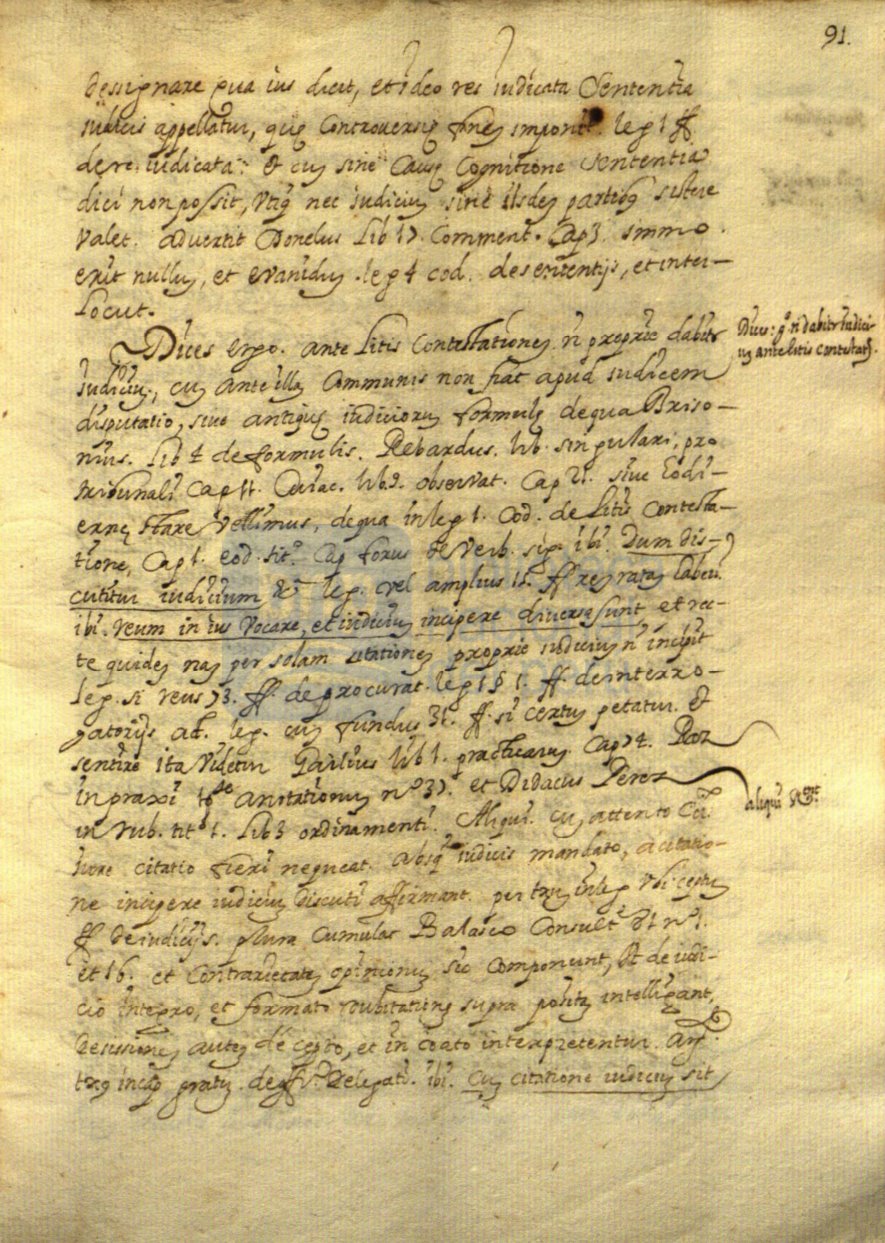 91.
dessignare qua ius dicit, et ideo res iudicata Sententia
iudicis appellatur, quę Controversię finem imponit. leg 1 ff
de re iudicata: et cum sine Causę Cognitione sententia
dici non possit, utiq nec iudicium sine iisdem partibq sistere
valet. advertit Donelus Lib 17. Comment. Cap 3. immo
erit nullum, et evanidum. leg 4 cod. de sententijs, et inter-
locut.
Dices ergo. ante Litis Contestationem ñ proprie dabitr
iudicium, cum ante illam Communis non fiat apud iudicem
disputatio, sive antiquę iudiciorum formulę de qua Briso-
nius. Lib 4 de formulis. Rebardus. lib. singulari, pro
tribunali Cap 11. Cuiac. lib. 9. observat. Cap 21. sive hodi-
ernę stare vellimus, de qua in leg 1. Cod. de Litis Contesta-
tione, Cap 1. eod. tit.º Cap forus de verb. sig. ibi. Dum dis-
cutitur iudicium &ª leg. vel amplius 15. ff rem ratam haberi
ibi. reum in ius vocare, et iudicium incipere diversa sunt, et rec-
te quidem nam per solam citationem proprie iudicium ñ incipit
leg. si reus 73. ff. de procurat. leg 1 § 1. ff. de interro-
gatorijs act. leg. cum fundus 31. ff. si certum petatur. et
sentire ita videtur Gailius lib 1. practicarum. Cap 74. Paz
in praxi anotationum nº 37. et Didacus Perez
in rub. titº 1. Lib 3 ordinamenti. Aliqui. cum attento
iure citatio fieri nequeat. absq iudicis mandato, a citatio-
ne incipere iudicium discuti affirmant. per tex in leg ubi ceptum
ff de iudicijs. plura cumulas Balasco Consult nº 1.
et 16. et contrarietatem opinionum sic componunt, ut de iudi-
cio integro, et formato dubitationem supra positam intelligant,
Desissionem autem de cepto, et in coato interpretentur. arg
tex in cap gratum. de offi.º Delegati. ibi. Cum citatione iudicium sit
Dices: q. ñ dabitr iudici-
um ante litis contestatm.
aliqui